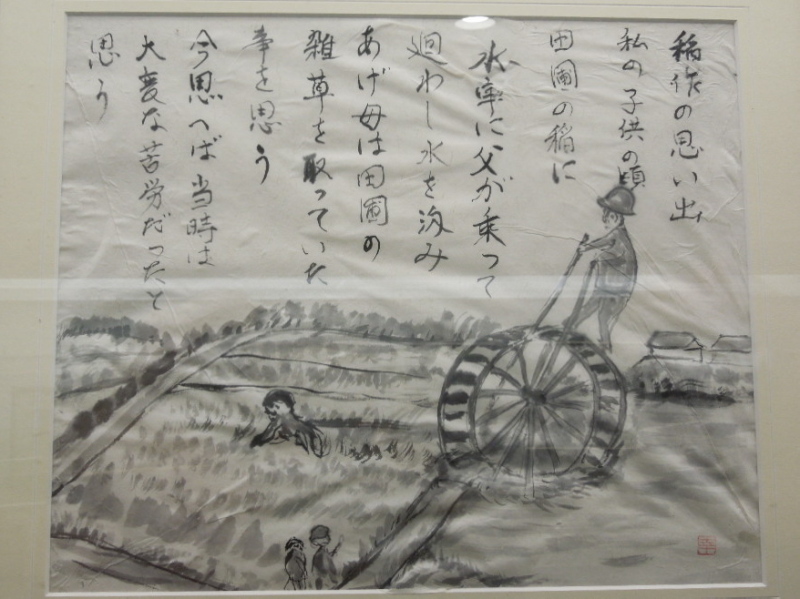 稲作の思い出
私の子供の頃
田圃の稲に
水車に父が乗って
廻わし水を汲み
あげ母は田圃の
雑草を取っていた
事を思う
今思へば当時は
大変な苦労だったと
思う